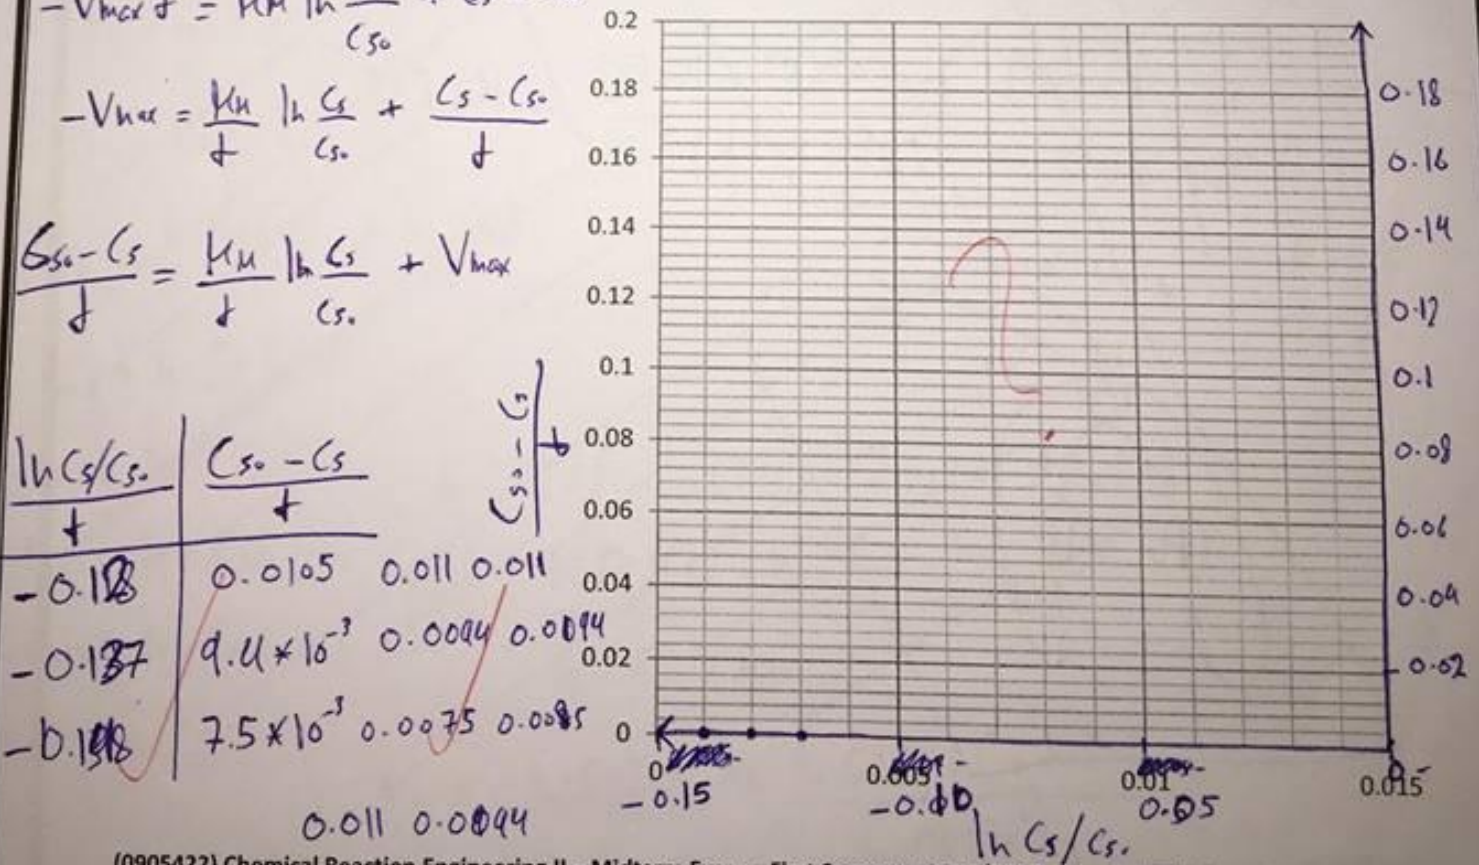 - Vmax t = KM ln
Cso
-Vmax = KM/t ln Cs/Cso + Cs - Cso/t
Cso - Cs/t = KM/t ln Cs/Cso + Vmax
ln Cs/Cso/t | Cso - Cs/t
0.0105 0.011 0.011
-0.137 | 9.4 × 10^-3 0.0094 0.0094
7.5 × 10^-3 0.0075 0.0085
0.011 0.0094
Cso - Cs/t
0.2
0.18
0.16
0.14
0.12
0.1
0.08
0.06
0.04
0.02
0
0.18
0.16
0.14
0.12
0.1
0.08
0.06
0.04
0.02
0 0.005 0.01 0.015
-0.15 -0.10 0.05
ln Cs/Cso
(0905422) Chemical Reaction Engineering II